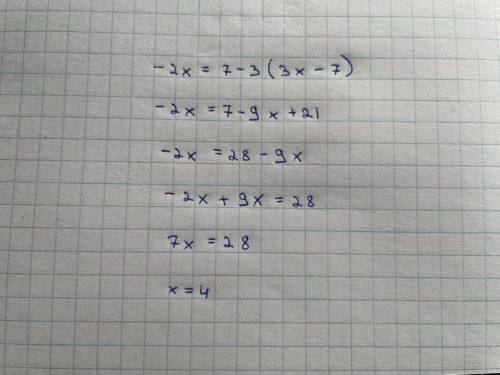 -2x = 7-3(3x-7)
-2x = 7-9x+21
-2x = 28-9x
-2x+9x=28
7x = 28
x=4